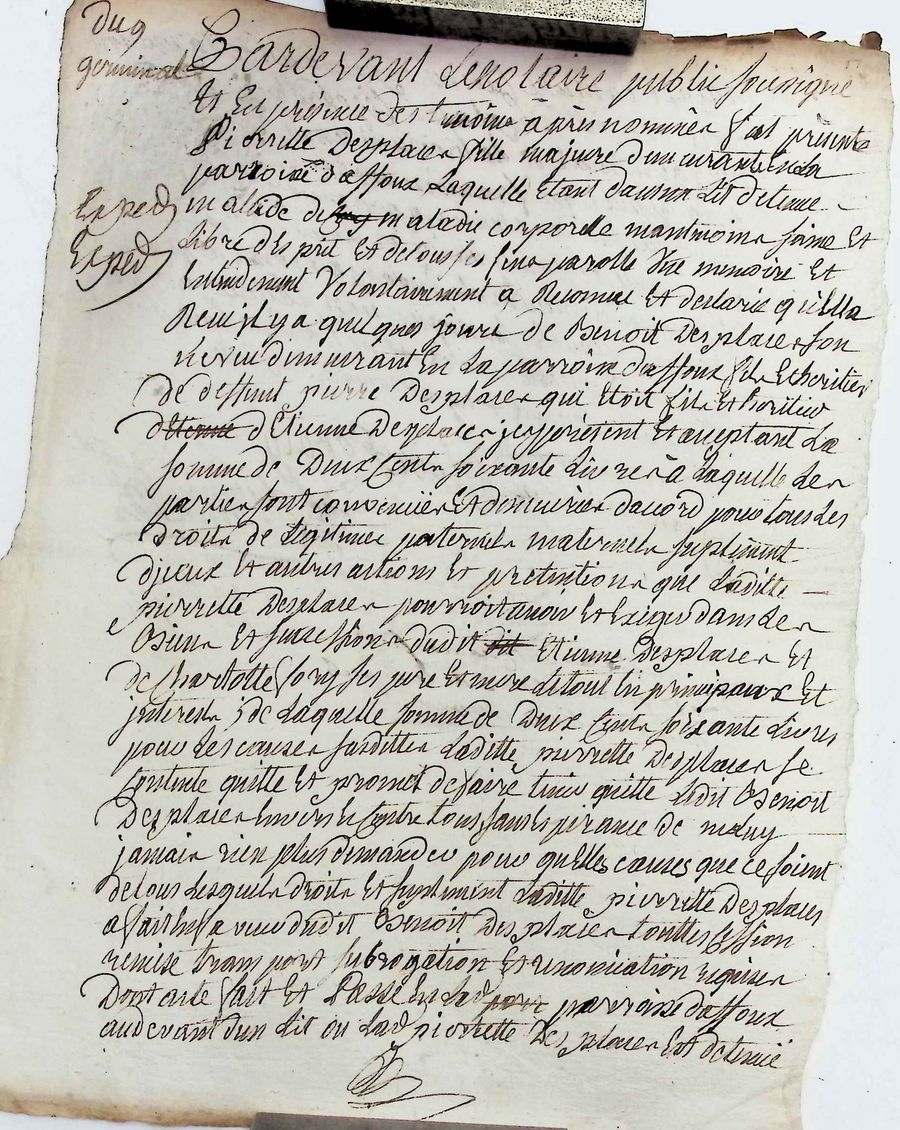 Du 9
germinal
Expedz
Exped
Pardevant Le Notaire public sousigné
Et En présence des temoins à près nommèes fut présente
Pierrette Desplaces fille majure demeurante En La
parroise d'affoux Laquelle Etant dans un Lit detenue
malade de maladie corporelle mantmoins saine Et
Libre d'Es prit Et de tous ses sins parolle Vüe memoire Et
Entendement Volontairement a Reconnue Et declarée qu'Ella
Reeu il y a quelques jours de Benoit Desplaces son
neveu dimeurant En La parroise d'affoux fils Et heritier
de deffunt pierre Desplaces qui Etoit fils Et heritier
d'Etienne d'Etienne Desplaces icy présent Et aceptant La
somme de Deux Cents soixante Livres à Laquelle Les
parties sont convenües Et demeurées dacord pour tous Les
Droits de Légitimes paternels maternels suplement
d'jceux Et autres actions Et pretentions que Laditte
pierrette Desplaces pourroit avoir Et Exiger dans Les
Biens Et successions dudit dit Etienne Desplaces Et
de Charlotte ses pere Et mere Le tout En principaux Et
interets ; de Laquelle somme de Deux Cents soixante Livres
pour Les causes susdittes Laditte pierrette Desplaces se
contente quitte Et promet de faire tenir quitte Ledit Benoit
Desplaces Envers Et Contre tous sans Esperance de ne Luy
jamais rien plus demander pour quelles causes que ce soient
de tous Lesquels droits Et suplement Laditte pierrette Desplaces
a fait En faveur dudit Benoit Desplaces touttes Cession
remise transport subrogation Et renonciation requises
Dont acte fait Et Passé En Lad parroisse d'affoux
au devant d'un Lit ou Lad pierrette Desplaces Est detenüe